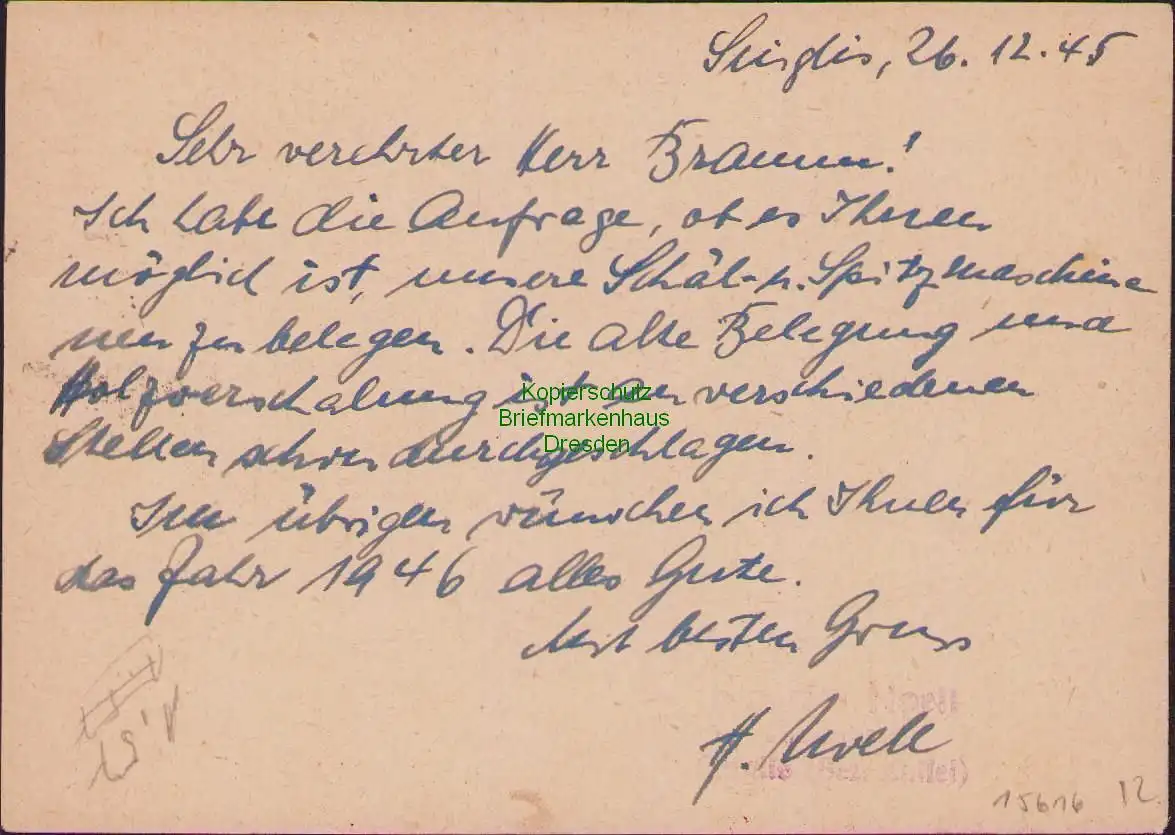 Singlis, 26.12.45
Sehr verehrter Herr Braun!
Ich habe die Anfrage, ob es Ihnen
möglich ist, unsere Schäl- u. Spitzmaschine
neu zu belegen. Die alte Belegung und
Holzverschalung ist an verschiedenen
Stellen schon durchgeschlagen.
Im übrigen wünschen ich Ihnen für
das Jahr 1946 alles Gute.
Mit besten Gruss
H.
Kopierschutz
Briefmarkenhaus
Dresden
15616 12